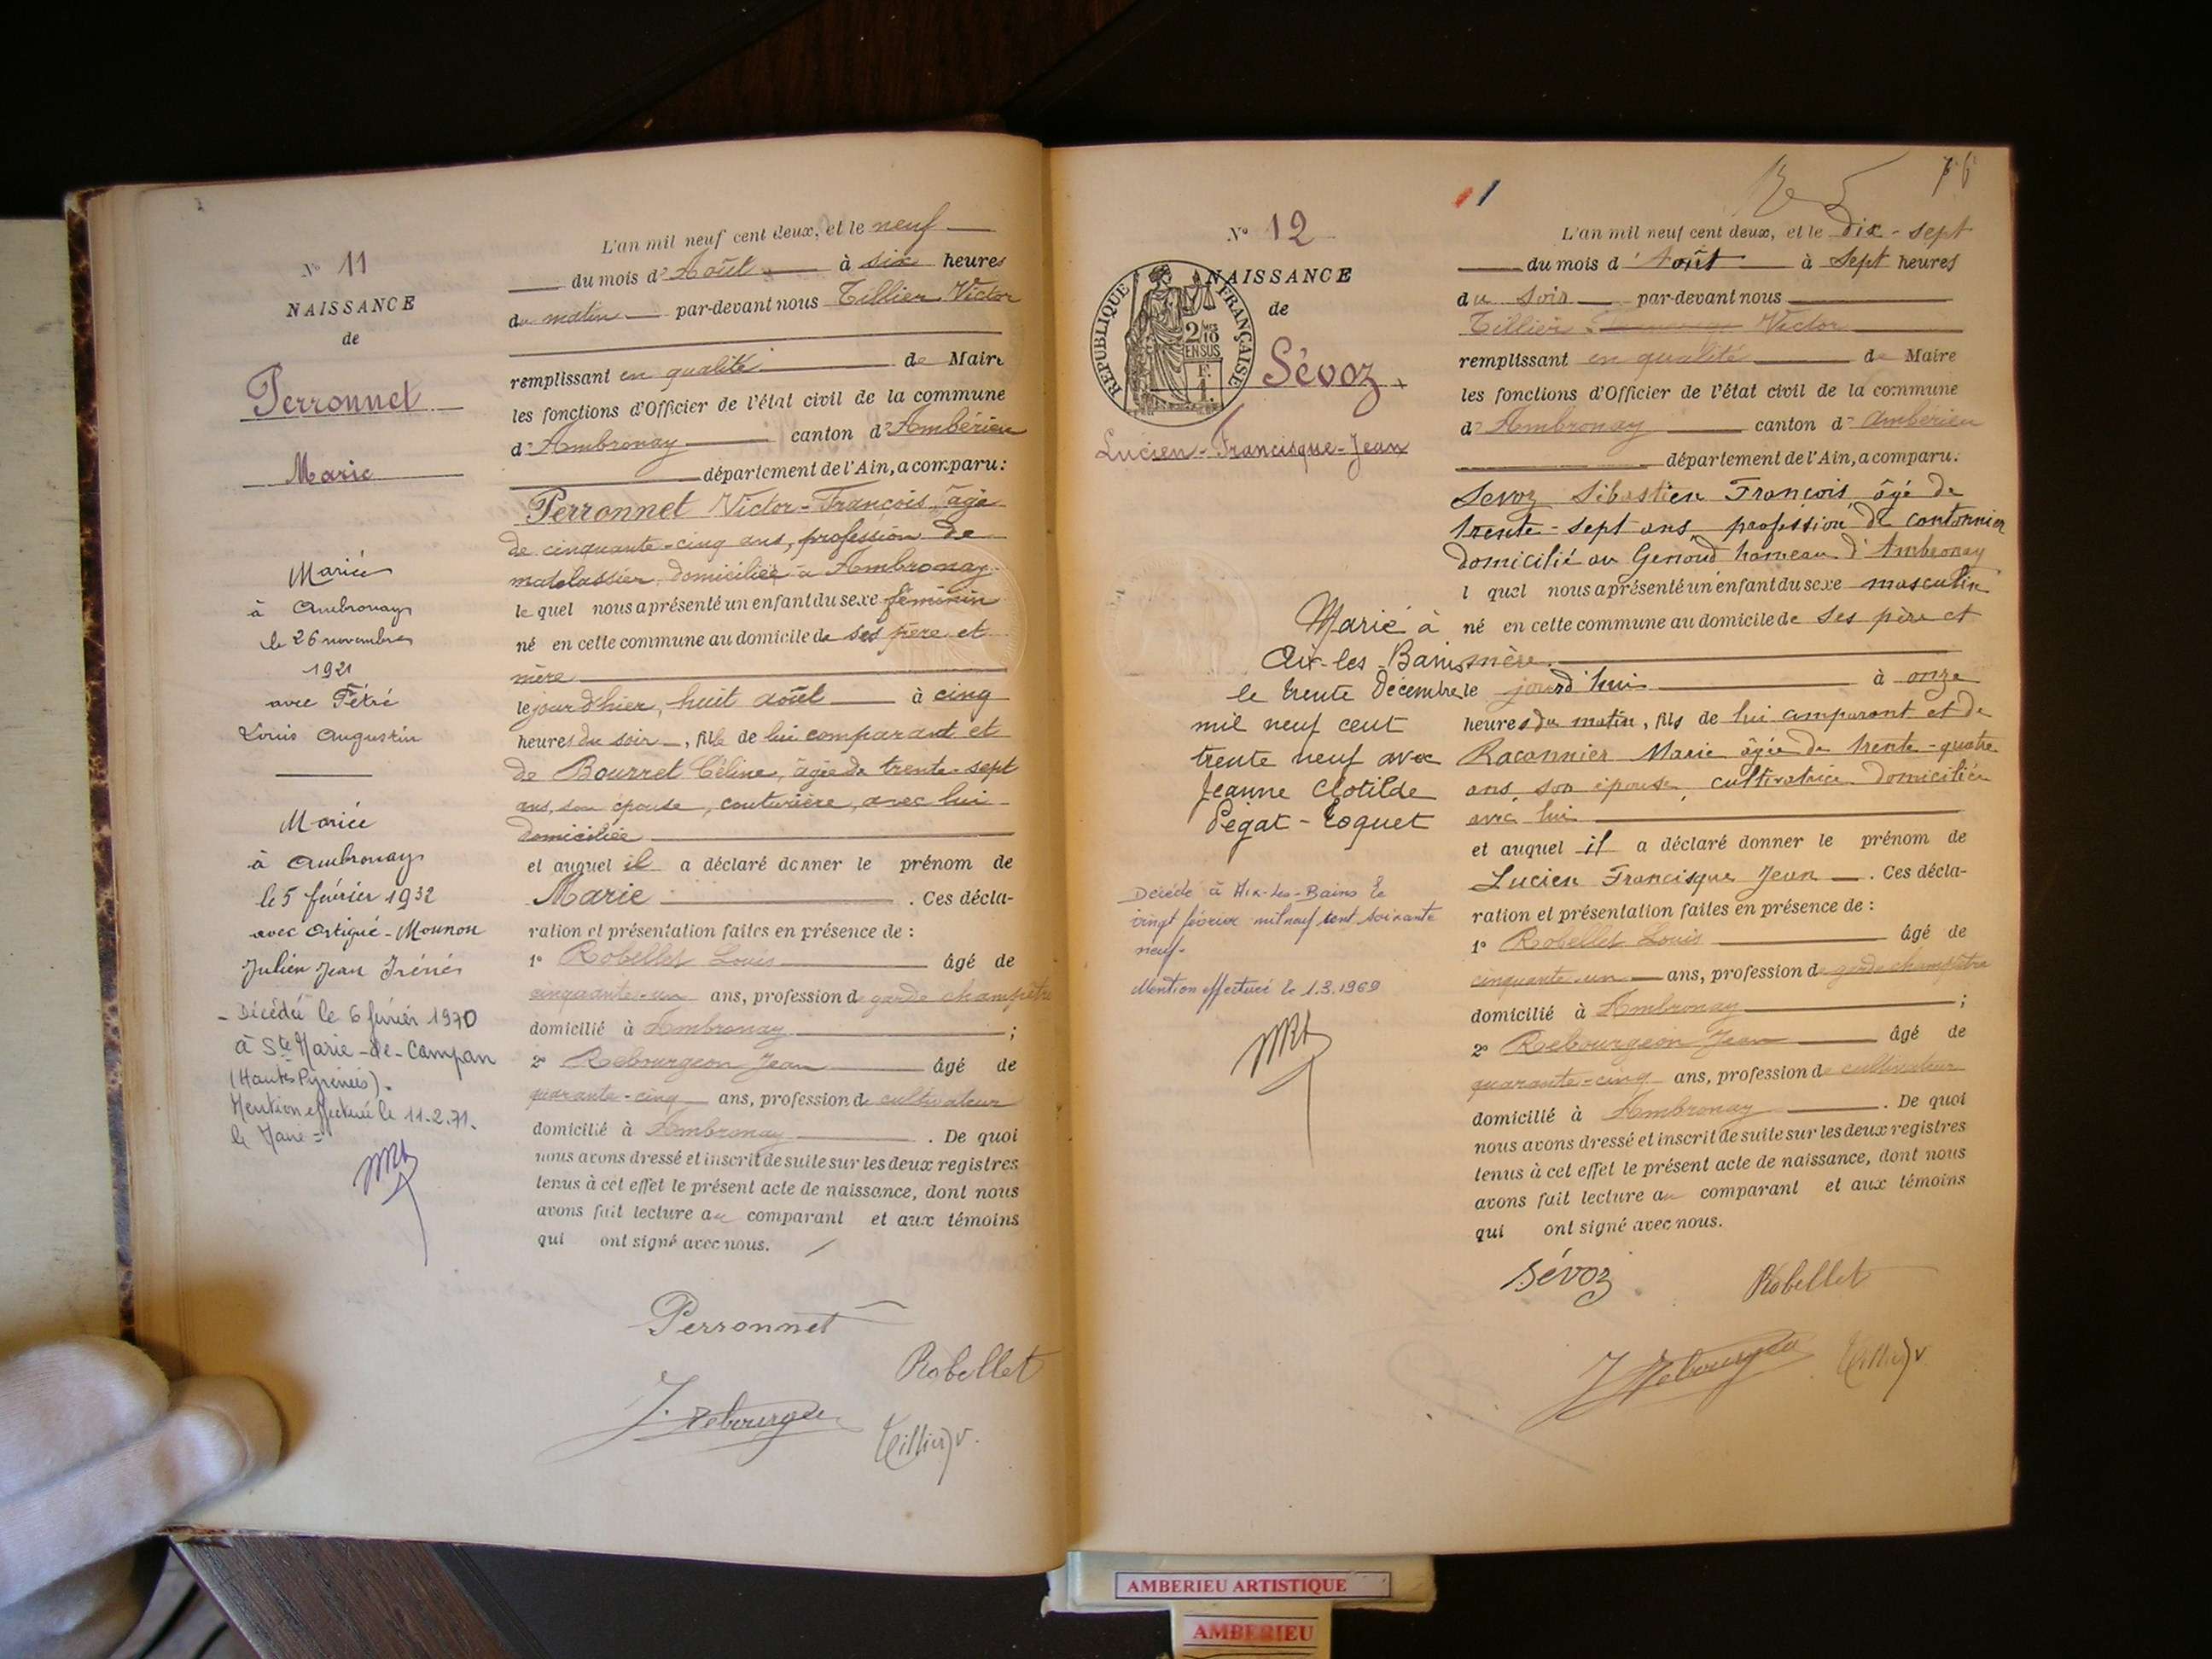 N° 11
NAISSANCE
de
Perronnet
Marie
Mariée
à Ambronay
le 26 novembre
1921
avec Fétré
Louis Augustin
Mariée
à Ambronay
le 5 février 1932
avec Artigué-Mounon
Julien Jean Irénée
- Décédée le 6 février 1970
à Ste Marie-de-Campan
(Hautes Pyrénées).
Mention effectuée le 11.2.71.
le Maire =
L'an mil neuf cent deux, et le neuf
du mois d'Août à six heures
du matin par-devant nous Tillier Victor
remplissant en qualité de Maire
les fonctions d'Officier de l'état civil de la commune
d'Ambronay canton d'Ambérieu
département de l'Ain, a comparu:
Perronnet Victor-François, âgé
de cinquante-cinq ans, profession de
matelassier, domiciliée à Ambronay
le quel nous a présenté un enfant du sexe féminin
né en cette commune au domicile de ses père et
mère
le jour d'hier, huit août à cinq
heures du soir, fille de lui comparant et
de Bourret Céline, âgée de trente-sept
ans, son épouse, couturière, avec lui
domiciliée
et auquel il a déclaré donner le prénom de
Marie . Ces décla-
ration et présentation faites en présence de :
1° Robellet Louis âgé de
cinquante-un ans, profession de garde champêtre
domicilié à Ambronay ;
2° Rebourgeon Jean âgé de
quarante-cinq ans, profession de cultivateur
domicilié à Ambronay . De quoi
nous avons dressé et inscrit de suite sur les deux registres
tenus à cet effet le présent acte de naissance, dont nous
avons fait lecture au comparant et aux témoins
qui ont signé avec nous.
Perronnet
Robellet
J. Rebourgeon
Tillier V.
76
N° 12
NAISSANCE
de
RÉPUBLIQUE FRANÇAISE
2/10 EN SUS
F. 1.
Sévoz
Lucien-Francisque-Jean
Marié à
Aix-les-Bains
le trente Décembre
mil neuf cent
trente neuf avec
Jeanne Clotilde
Pégat-Toquet
Décédé à Aix-les-Bains le
vingt février mil neuf cent soixante
neuf.
Mention effectuée le 1.3.1969
L'an mil neuf cent deux, et le Dix-sept
du mois d'Août à sept heures
du soir par-devant nous
Tillier Victor
remplissant en qualité de Maire
les fonctions d'Officier de l'état civil de la commune
d'Ambronay canton d'Ambérieu
département de l'Ain, a comparu.
Sevoz Sébastien François âgé de
trente-sept ans, profession de cantonnier
domicilié au Genoud hameau d'Ambronay
l quel nous a présenté un enfant du sexe masculin
né en cette commune au domicile de ses père et
mère.
le jourd'hui à onze
heures du matin, fils de lui comparant et de
Raconnier Marie âgée de trente-quatre
ans, son épouse, cultivatrice domiciliée
avec lui
et auquel il a déclaré donner le prénom de
Lucien Francisque Jean . Ces décla-
ration et présentation faites en présence de :
1° Robellet Louis âgé de
cinquante-un ans, profession de garde champêtre
domicilié à Ambronay ;
2° Rebourgeon Jean âgé de
quarante-cinq ans, profession de cultivateur
domicilié à Ambronay . De quoi
nous avons dressé et inscrit de suite sur les deux registres
tenus à cet effet le présent acte de naissance, dont nous
avons fait lecture au comparant et aux témoins
qui ont signé avec nous.
Sévoz
Robellet
J Rebourgeon
Tillier V
AMBERIEU ARTISTIQUE
AMBERIEU